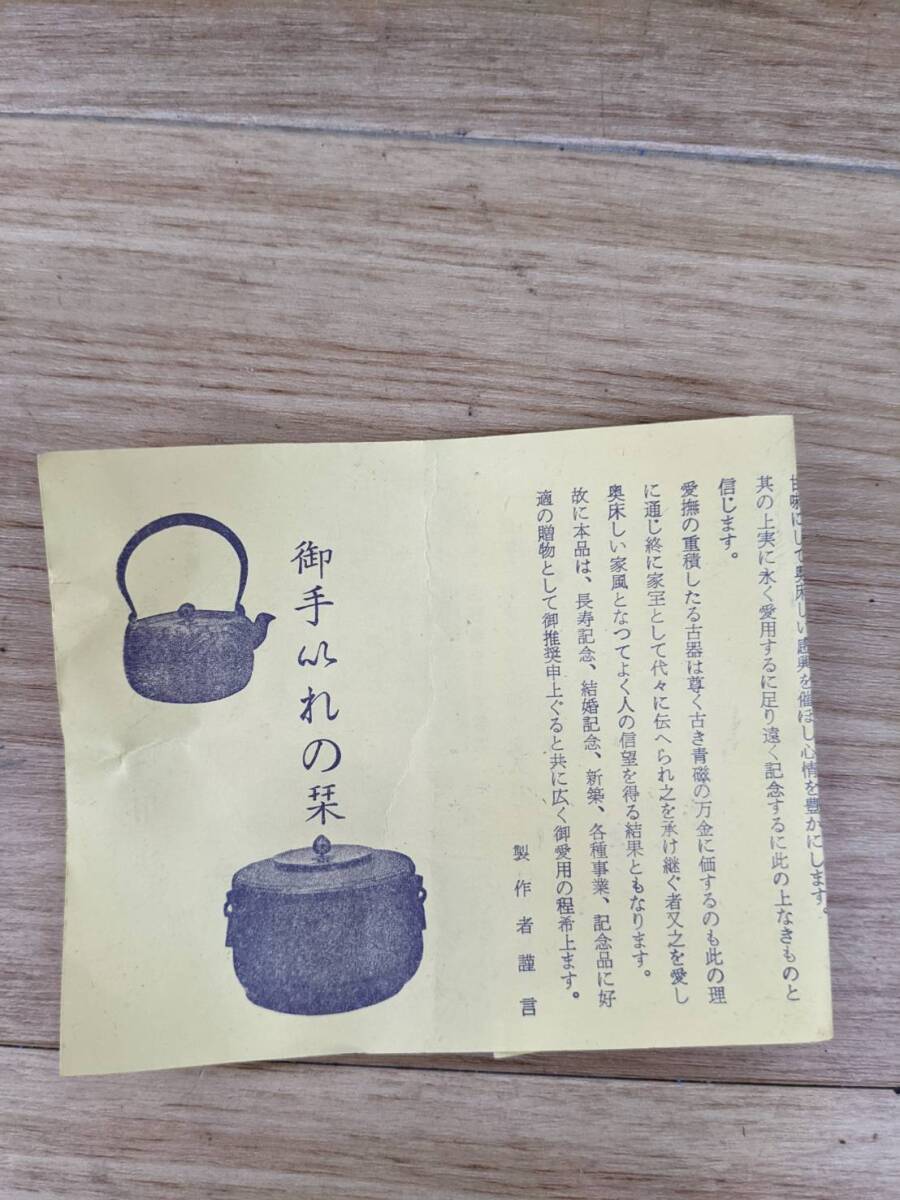 甘味にして奥床しい感興を催ほし心情を豊かにします。
其の上実に永く愛用するに足り遠く記念するに此の上なきものと
信じます。
愛撫の重積したる古器は尊く古き青磁の万金に価するのも此の理
に通じ終に家宝として代々に伝へられ之を承け継ぐ者又之を愛し
奥床しい家風となつてよく人の信望を得る結果ともなります。
故に本品は、長寿記念、結婚記念、新築、各種事業、記念品に好
適の贈物として御推奨申上ぐると共に広く御愛用の程希上ます。
製作者謹言
御手いれの栞